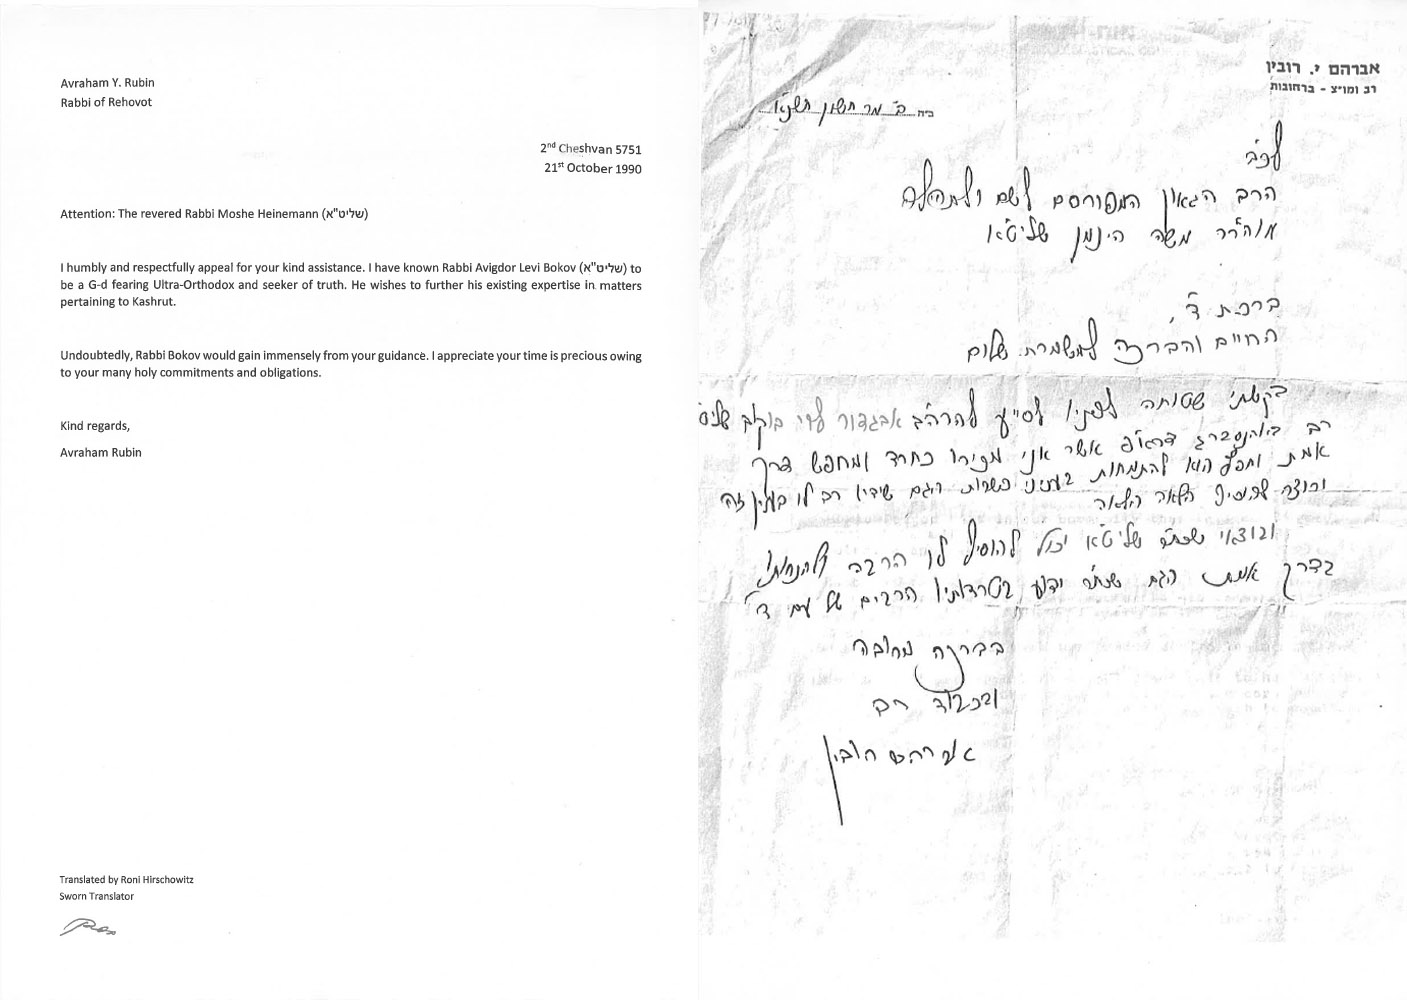 Avraham Y. Rubin
Rabbi of Rehovot
2nd Cheshvan 5751
21st October 1990
Attention: The revered Rabbi Moshe Heinemann (שליט"א)
I humbly and respectfully appeal for your kind assistance. I have known Rabbi Avigdor Levi Bokov (שליט"א) to
be a G-d fearing Ultra-Orthodox and seeker of truth. He wishes to further his existing expertise in matters
pertaining to Kashrut.
Undoubtedly, Rabbi Bokov would gain immensely from your guidance. I appreciate your time is precious owing
to your many holy commitments and obligations.
Kind regards,
Avraham Rubin
Translated by Roni Hirschowitz
Sworn Translator
אברהם י. רובין
רב ומו"צ - ברחובות
ב"ה ב' מר חשון תשנ"א
לכב'
הרב הגאון המפורסם לשם ולתהלה
מוה"ר משה היינמן שליט"א
ברכת ד',
החיים והברכה למשמרת שלום
בקשתי שטוחה לפניו לסייע להרה"ג אבגדור לוי בוקוב שליט
רב ביוהנסברג דרא"פ אשר אני מכירו כחרד ומחפש דרך
אמת וחפץ הוא להתמחות בעניני כשרות הגם שידיו רב לו בענין זה
ורוצה להוסיף הלאה והלאה
ובודאי שכת"ר שליט"א יכול להוסיף לו הרבה ולהנחותו
בדרך אמת הגם שכת"ר ידוע בטרדותיו הרבים של עם ד'
בברכה מרובה
ובכבוד רב
אברהם רובין